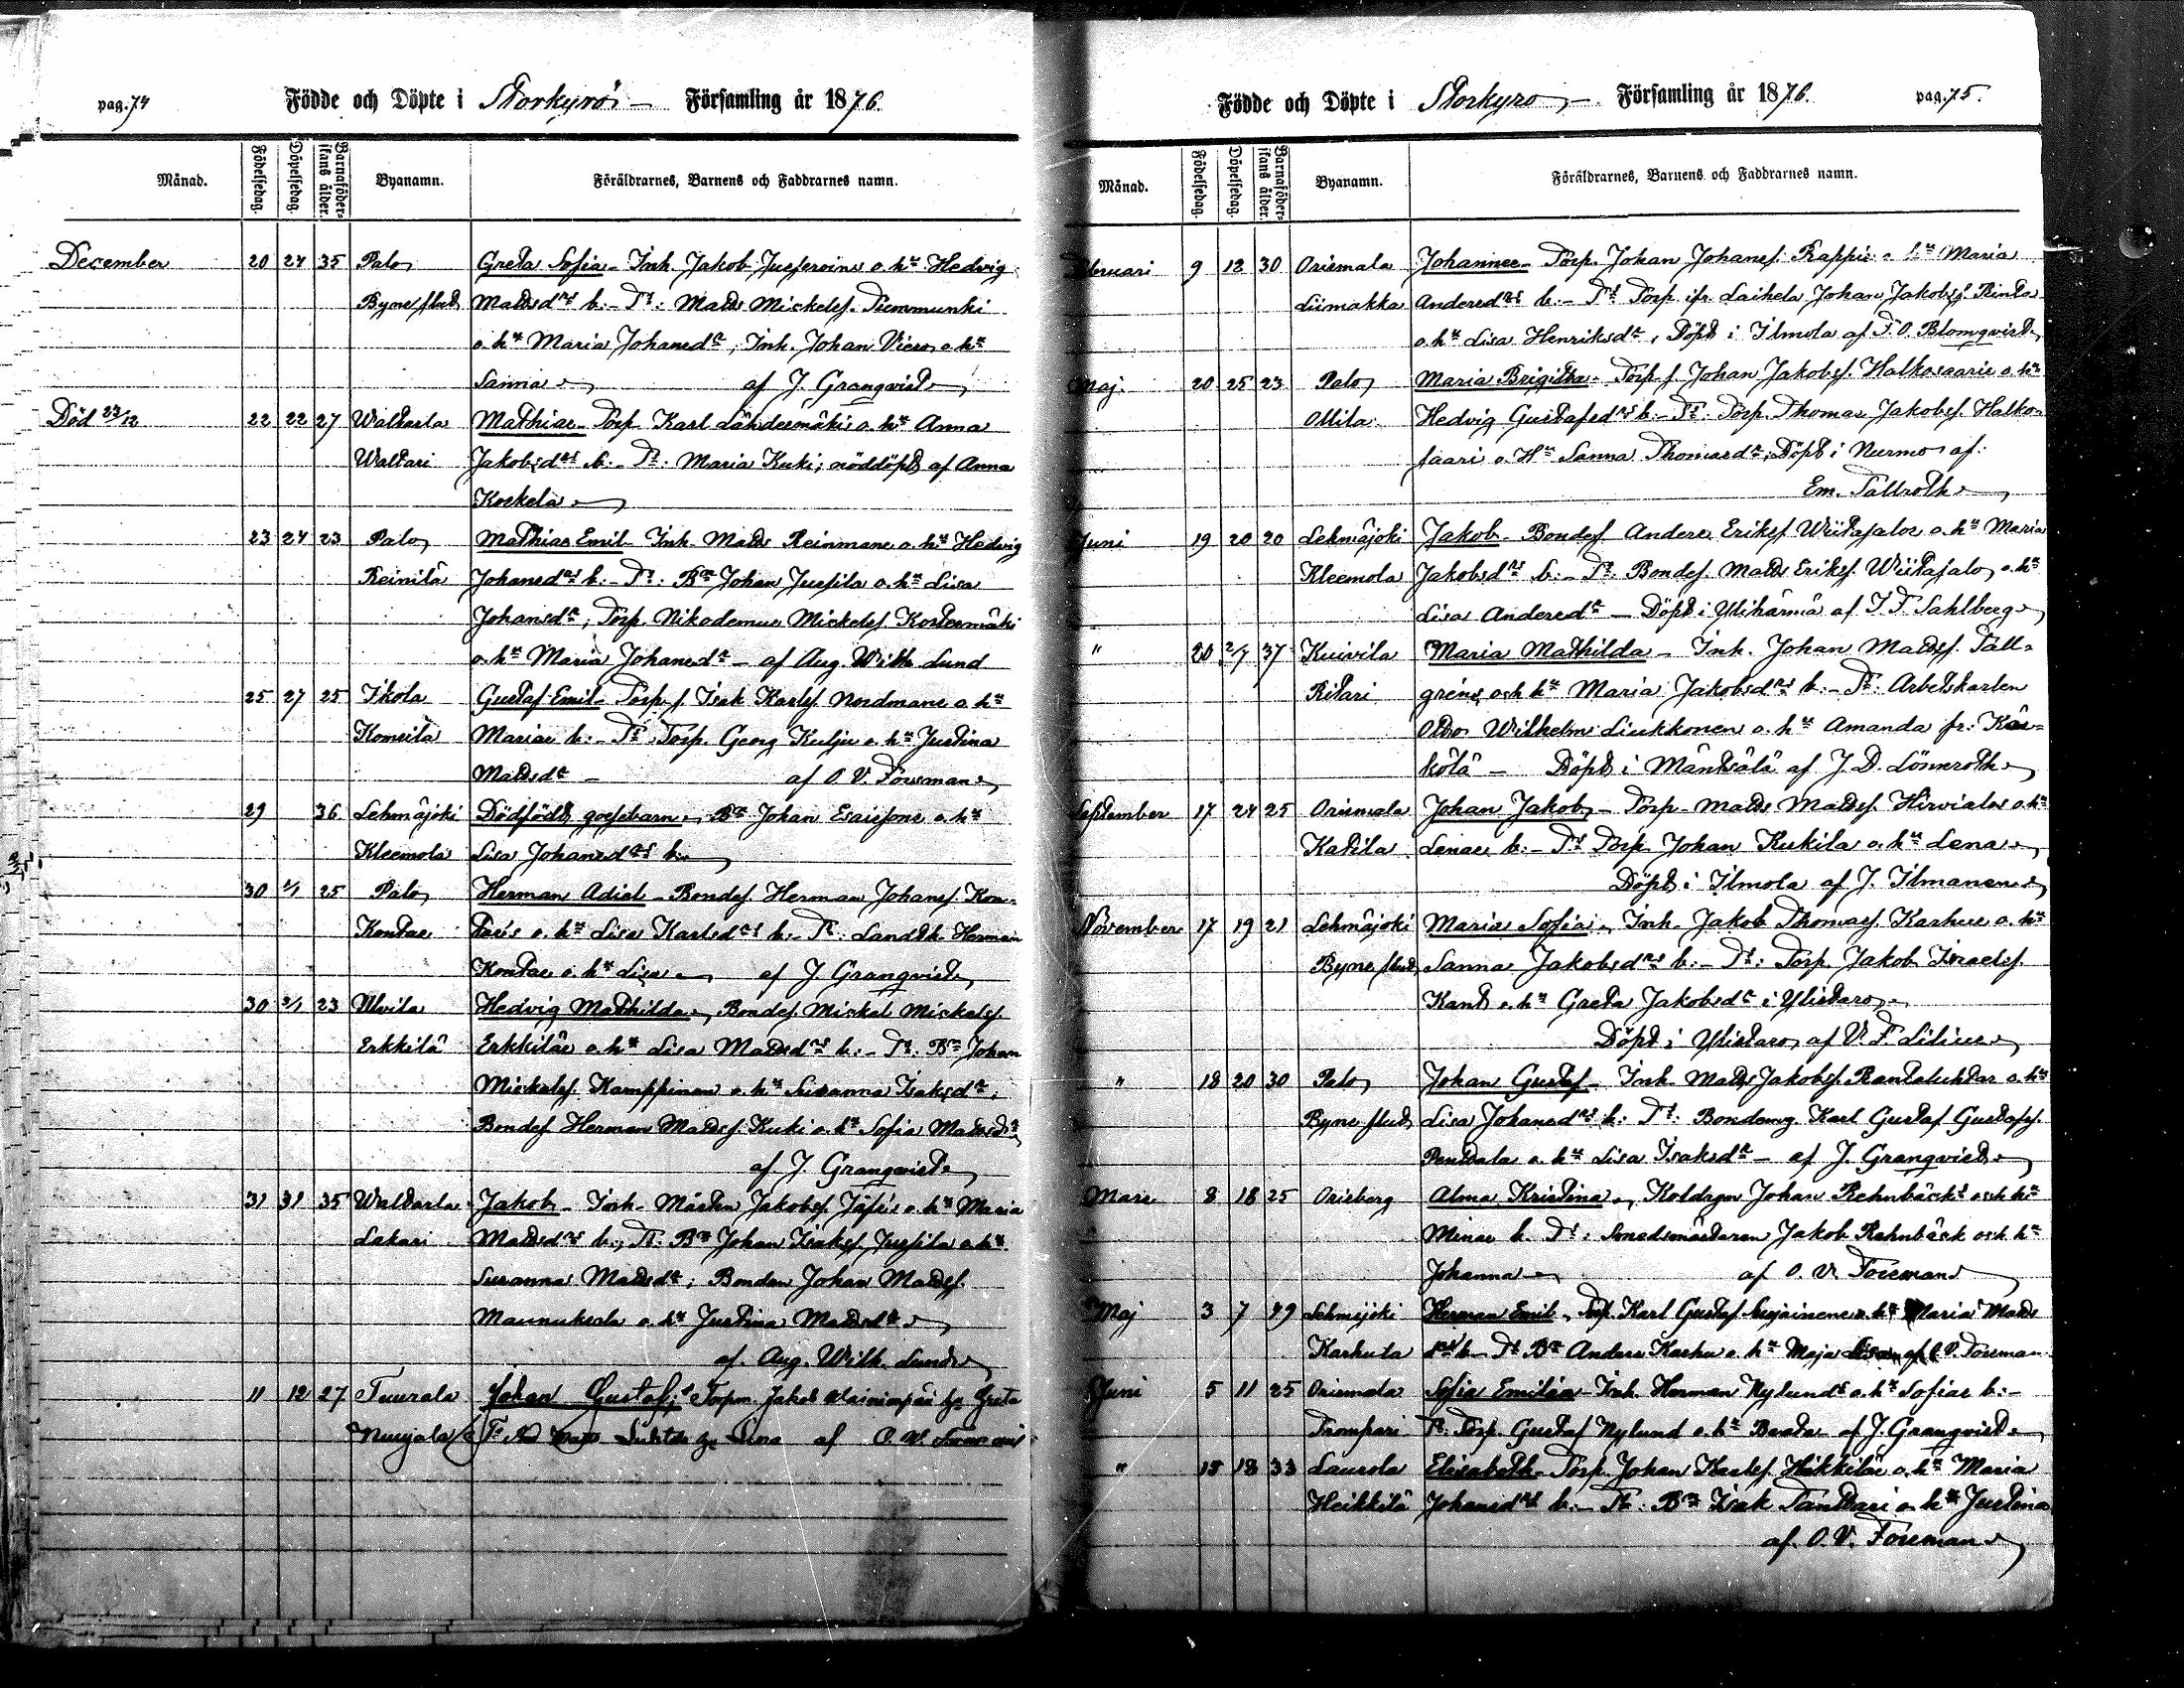 pag. 74
Födde och Döpte i Storkyrö Församling år 1876.
Månad. Födelsedag. Döpelsedag. Barnaföderskans ålder. Byanamn. Föräldrarnes, Barnens och Faddrarnes namn.
December 20 24 35 Palo Greta Sofia - Inh. Jakob o. hn Hedvig
Bynes Mattsdrs b: - Ft: Matts Mickelss. Tummunki
o. hn Maria Johansdr, Inh. Johan o. hn
Sanna af J. Granqvist
Död 23/12 22 22 27 Waltarla Mathias - Torp. Karl Lähdesmäkis o. hn Anna
Waltari Jakobsdrs b: - Ft: Maria Kuki; nöddöpt af Anna
Koskela
23 24 23 Palo Mathias Emil - Inh. Matts Reinmans o. hn Hedvig
Reinilä Johansdrs b: - Ft: Bn Johan Jussila o. hn Lisa
Johansdr, Torp. Nikodemus Mickelss. Kostermäki
o. hn Maria Johansdr - af Aug. Wilh. Lund
25 27 25 Ikola Gustaf Emil - Torp. s. Isak Karlss. Nordmans o. hn
Komsila Marias b: - Ft: Torp. Georg Kulju o. hn Justina
Mattsdr - af O. V. Forsman
29 36 Lehmäjoki Dödfödt gossebarn - Bn Johan Esaiessons o. hn
Kleemola Lisa Johansdrs b:
30 2/1 25 Palo Herman Adiel - Bondes. Herman Johans. Kon-
Kontas o. hn Lisa Karlsdrs b: - Ft: Landth. Herman
Kontas o. hn Lisa af J. Granqvist
30 2/1 23 Ulvila Hedvig Mathilda - Bondes. Mickel Mickelss.
Erkkilä Erkkiläs o. hn Lisa Mattsdrs b: - Ft: Bn Johan
Mickelss. Kamppinen o. hn Susanna Isaksdr,
Bondes. Herman Mattss. Kuki o. hn Sofia Mattsdr
af J. Granqvist
31 31 35 Waltarla Jakob - Inh. Mårten Jakobss. o. hn Maria
Lakari Mattsdrs b:, Ft: Bn Johan Isakss. Jussila o. hn
Susanna Mattsdr; Bonden Johan Mattss.
Mannuksela o. hn Justina Mattsdr
af Aug. Wilh. Lund
11 12 27 Tuurala Johan Gustaf; Torpn. Jakob Greta
Nuujala Ft Lisa af O. V.
Födde och Döpte i Storkyro Församling år 1876. pag. 75.
Månad. Födelsedag. Döpelsedag. Barnaföderskans ålder. Byanamn. Föräldrarnes, Barnens och Faddrarnes namn.
Februari 9 12 30 Orismala Johannes - Torp. Johan Johans. Rappis o. hn Maria
Liimakka Andersdrs b: - Ft Torp. ifr. Laihela Johan Jakobss. Rinta
o. hn Lisa Henriksdr, Döpt i Ilmola af F. O. Blomqvist
Maj 20 25 23 Palo Maria Brigitta - Torp. s. Johan Jakobss. Halkosaaris o. hn
Ollila Hedvig Gustafsdrs b: - Ft. Torp. Thomas Jakobss. Halko-
saari o. Hn Sanna Thomasdr; Döpt i Nurmo af
Em. Tallroth
Juni 19 20 20 Lehmäjoki Jakob - Bondes. Anders Erikss. Wiitasalos o. hn Maria
Kleemola Jakobsdrs b: - Ft. Bondes. Matts Erikss. Wiitasalo o. hn
Lisa Andersdr - Döpt i Ylihärmä af J. F. Sahlberg
" 20 2/7 37 Kuivila Maria Mathilda - Inh. Johan Mattss. Täll-
Ritari gréns och hn Maria Jakobsdrs b: - Ft: Arbetskarlen
Otto Wilhelm Liukkonen o. hn Amanda fr: Kär-
kölä - Döpt i Mäntsälä af J. D. Lönnroth
September 17 24 25 Orismala Johan Jakob - Torp. Matts Mattss. Hirvialos o. hn
Katila Lenas b: - Ft Torp. Johan Kukila o. hn Lena
Döpt i Ilmola af J. Ilmanen
November 17 19 21 Lehmäjoki Maria Sofia - Inh. Jakob Thomass. Karhus o. hn
Bynes Sanna Jakobsdrs b: - Ft: Torp. Jakob Israelss.
Kant o. hn Greta Jakobsdr i Ylistaro
Döpt i Ylistaro af V. F. Lilius
" 18 20 30 Palo Johan Gustaf - Inh. Matts Jakobss. Rantaluhtas o. hn
Bynes Lisa Johansdrs b: Ft: Bondemg. Karl Gustaf Gustafss.
Penttala o. hn Lisa Isaksdr - af J. Granqvist
Mars 8 18 25 Orisberg Alma Kristina - Johan Rehnbäcks och hn
Minas b. Ft: Smedsmästaren Jakob Rehnbäck och hn
Johanna af O. V. Forsman
Maj 3 7 29 Lehmäjoki Herman Emil - Torp. Karl Gustaf o. hn Maria Matts
Karhula drs b - Ft Bn Anders Karhu o. hn Maja Lisa af O. V. Forsman
Juni 5 11 25 Orismala Sofia Emilia - Inh. Herman Nylunds o. hn Sofias b: -
Trompari Ft. Torp. Gustaf Nylund o. hn Beata - af J. Granqvist
" 15 18 33 Laurola Elisabeth - Torp. Johan Karlss. Heikkiläs o. hn Maria
Heikkilä Johansdrs b: - Ft: Bn Isak Tanttari o. hn Justina
af O. V. Forsman